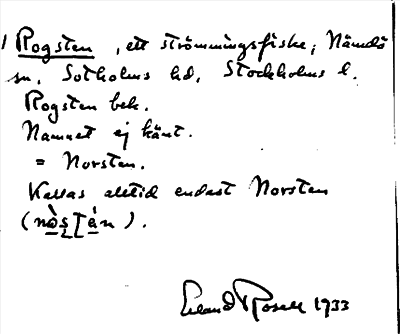 Rogsten, ett strömmingsfiske, Nämdö
sn, Sotholms hd, Stockholms l.
Rogsten bek.
Namnet ej känt.
= Norsten.
Kallas alltid endast Norsten
(nɷ̀s̨tán).
Erland Rosell 1933